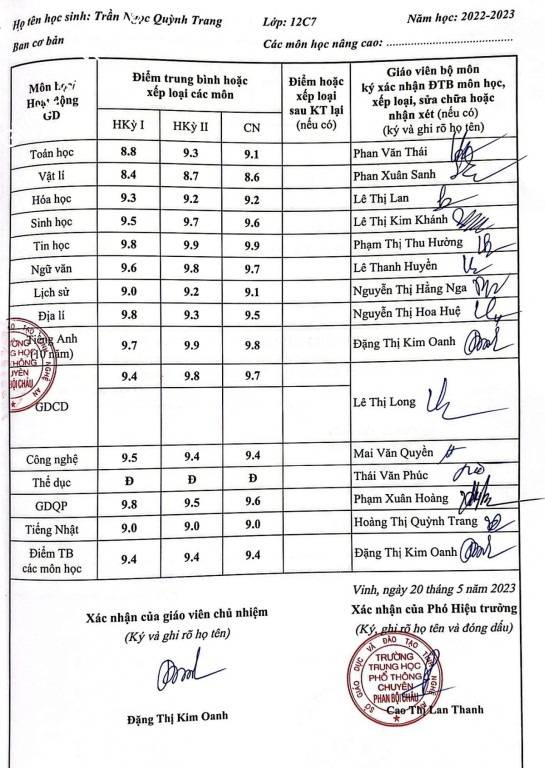 Họ tên học sinh: Trần Ngọc Quỳnh Trang Lớp: 12C7 Năm học: 2022-2023
Ban cơ bản Các môn học nâng cao: ........................................
Môn học/ Hoạt động GD Điểm trung bình hoặc xếp loại các môn Điểm hoặc xếp loại sau KT lại (nếu có) Giáo viên bộ môn ký xác nhận ĐTB môn học, xếp loại, sửa chữa hoặc nhận xét (nếu có) (ký và ghi rõ họ tên)
HKỳ I HKỳ II CN
Toán học 8.8 9.3 9.1 Phan Văn Thái
Vật lí 8.4 8.7 8.6 Phan Xuân Sanh
Hóa học 9.3 9.2 9.2 Lê Thị Lan
Sinh học 9.5 9.7 9.6 Lê Thị Kim Khánh
Tin học 9.8 9.9 9.9 Phạm Thị Thu Hường
Ngữ văn 9.6 9.8 9.7 Lê Thanh Huyền
Lịch sử 9.0 9.2 9.1 Nguyễn Thị Hằng Nga
Địa lí 9.8 9.3 9.5 Nguyễn Thị Hoa Huệ
Tiếng Anh (10 năm) 9.7 9.9 9.8 Đặng Thị Kim Oanh
GDCD 9.4 9.8 9.7 Lê Thị Long
Công nghệ 9.5 9.4 9.4 Mai Văn Quyền
Thể dục Đ Đ Đ Thái Văn Phúc
GDQP 9.8 9.5 9.6 Phạm Xuân Hoàng
Tiếng Nhật 9.0 9.0 9.0 Hoàng Thị Quỳnh Trang
Điểm TB các môn học 9.4 9.4 9.4 Đặng Thị Kim Oanh
Vinh, ngày 20 tháng 5 năm 2023
Xác nhận của giáo viên chủ nhiệm Xác nhận của Phó Hiệu trưởng
(Ký và ghi rõ họ tên) (Ký, ghi rõ họ tên và đóng dấu)
SỞ GIÁO DỤC VÀ ĐÀO TẠO TỈNH NGHỆ AN
TRƯỜNG
TRUNG HỌC
PHỔ THÔNG
CHUYÊN
PHAN BỘI CHÂU
Đặng Thị Kim Oanh Cao Thị Lan Thanh